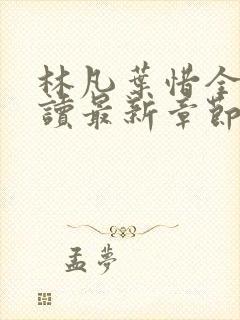 林凡葉惜全
讀最新章節
孟夢